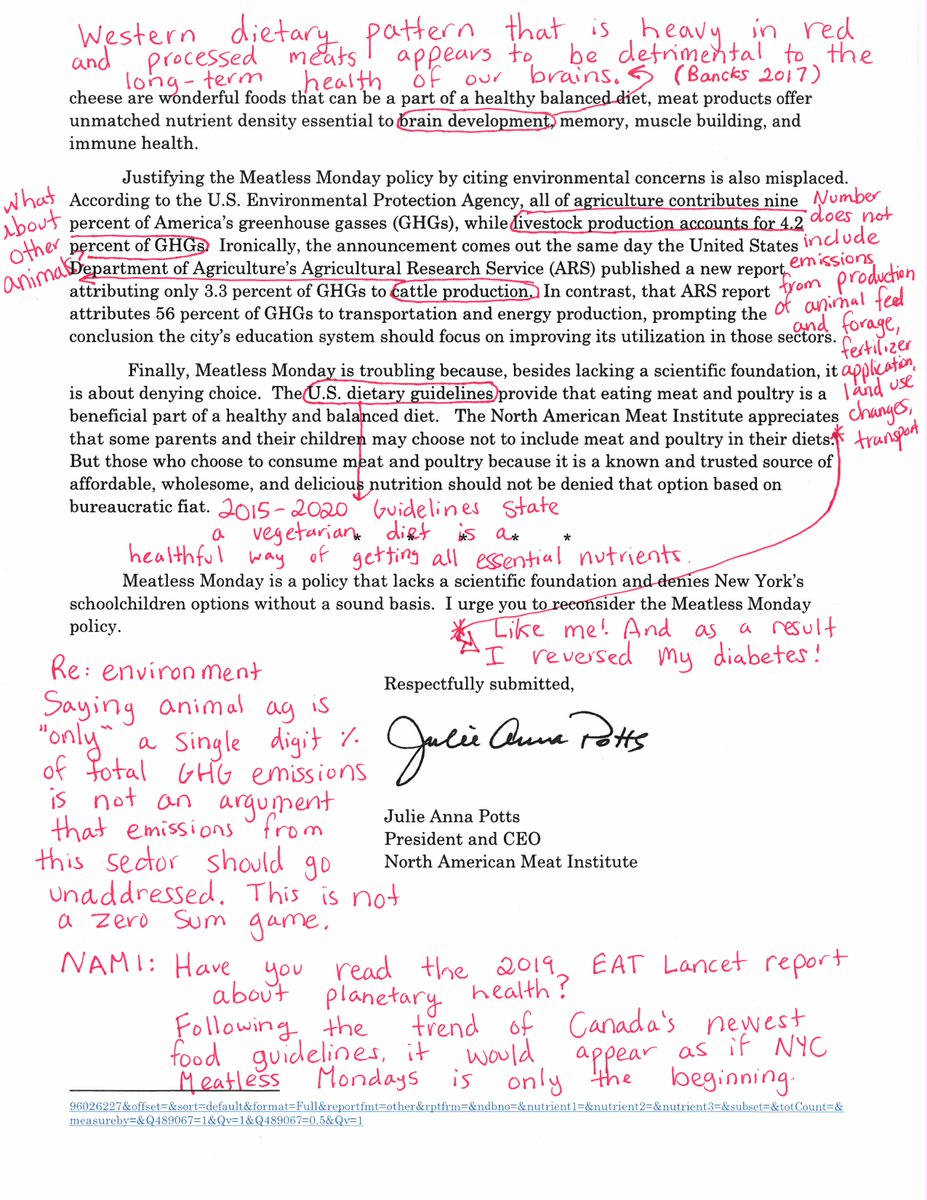 Western dietary pattern that is heavy in red
and processed meats appears to be detrimental to the
long-term health of our brains. (Bancks 2017)
cheese are wonderful foods that can be a part of a healthy balanced diet, meat products offer
unmatched nutrient density essential to brain development, memory, muscle building, and
immune health.
Justifying the Meatless Monday policy by citing environmental concerns is also misplaced.
According to the U.S. Environmental Protection Agency, all of agriculture contributes nine
percent of America's greenhouse gasses (GHGs), while livestock production accounts for 4.2
percent of GHGs. Ironically, the announcement comes out the same day the United States
Department of Agriculture's Agricultural Research Service (ARS) published a new report
attributing only 3.3 percent of GHGs to cattle production. In contrast, that ARS report
attributes 56 percent of GHGs to transportation and energy production, prompting the
conclusion the city's education system should focus on improving its utilization in those sectors.
What
about
other
animals?
Number
does not
include
emissions
from production
of animal feed
and forage,
fertilizer
application,
land use
changes,
transport
Finally, Meatless Monday is troubling because, besides lacking a scientific foundation, it
is about denying choice. The U.S. dietary guidelines provide that eating meat and poultry is a
beneficial part of a healthy and balanced diet. The North American Meat Institute appreciates
that some parents and their children may choose not to include meat and poultry in their diets.*
But those who choose to consume meat and poultry because it is a known and trusted source of
affordable, wholesome, and delicious nutrition should not be denied that option based on
bureaucratic fiat.
2015-2020 Guidelines State
a vegetarian diet is a
* * * *
healthful way of getting all essential nutrients.
Meatless Monday is a policy that lacks a scientific foundation and denies New York's
schoolchildren options without a sound basis. I urge you to reconsider the Meatless Monday
policy.
* Like me! And as a result
I reversed my diabetes!
Respectfully submitted,
Julie Anna Potts
Julie Anna Potts
President and CEO
North American Meat Institute
Re: environment
Saying animal ag is
"only" a single digit %
of total GHG emissions
is not an argument
that emissions from
this sector should go
unaddressed. This is not
a zero sum game.
NAMI: Have you read the 2019 EAT Lancet report
about planetary health?
Following the trend of Canada's newest
food guidelines, it would appear as if NYC
Meatless Mondays is only the beginning.
96026227&offset=&sort=default&format=Full&reportfmt=other&rptfrm=&ndbno=&nutrient1=&nutrient2=&nutrient3=&subset=&totCount=&
measureby=&Q489067=1&Qv=1&Q489067=0.5&Qv=1